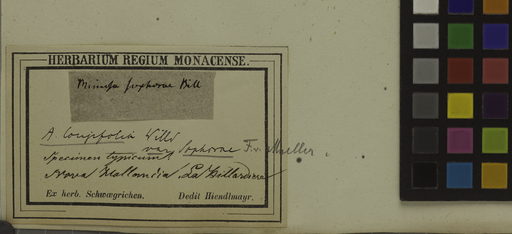 HERBARIUM REGIUM MONACENSE.
Mimosa sophorae Bill
A. longifolia Willd
var. Sophorae F. v. Mueller.
Specimen typicum
Nova Hollandia, La Billardiere
Ex herb. Schwægrichen. Dedit Hiendlmayr.